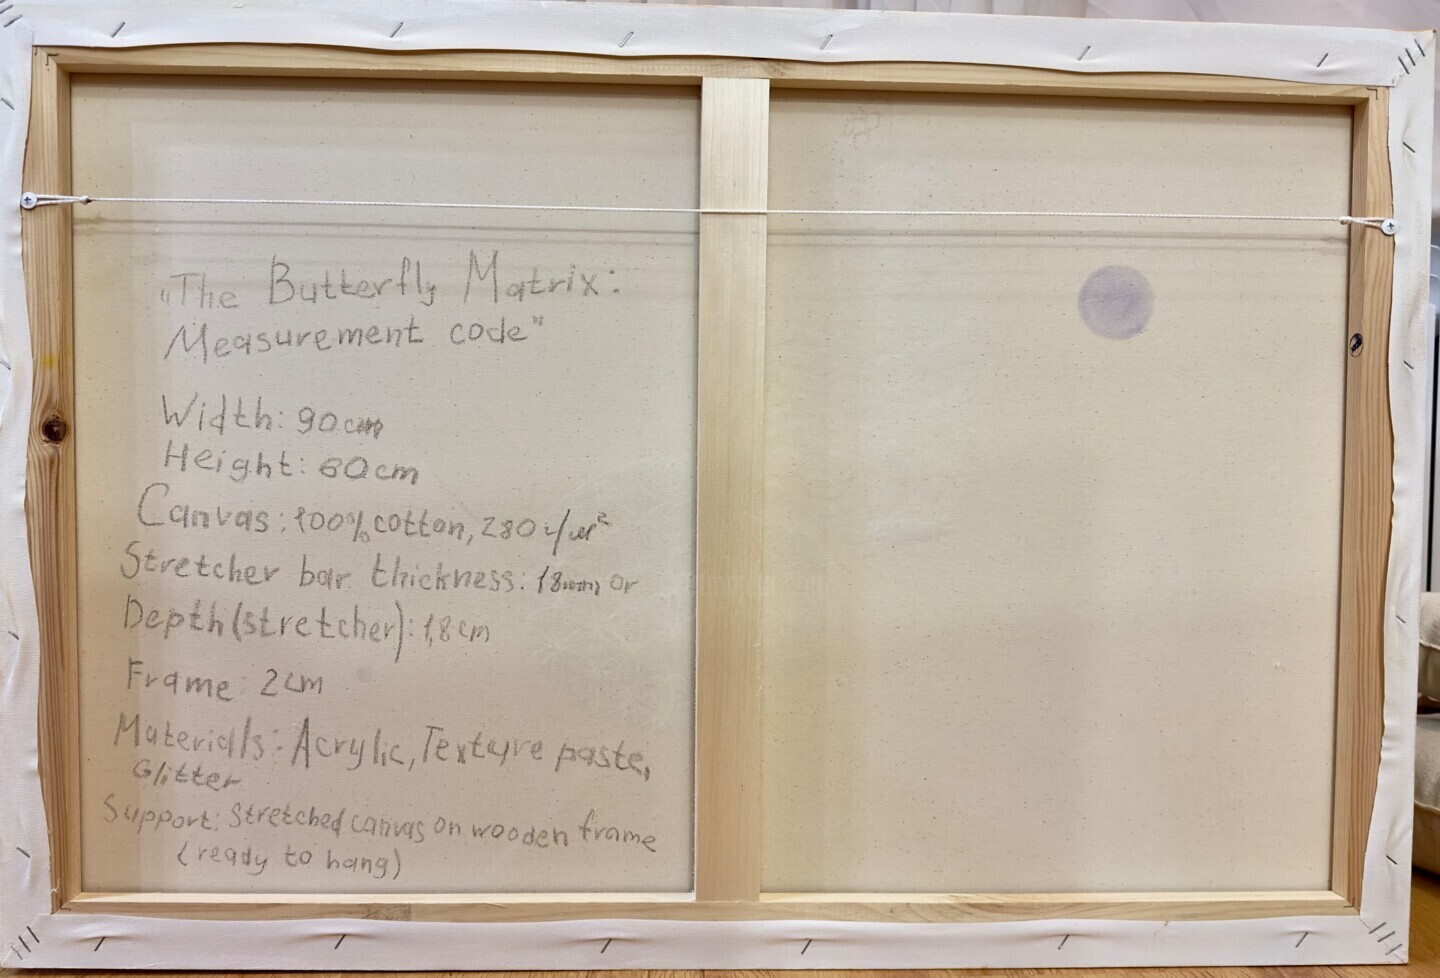 „The Butterfly Matrix:
Measurement code"
Width: 90cm
Height: 60cm
Canvas: 100% cotton, 280 г/м²
Stretcher bar thickness: 18mm or
Depth (stretcher): 1,8cm
Frame: 2cm
Materialls: Acrylic, Texture paste,
Glitter
Support: Stretched canvas on wooden frame
(ready to hang)